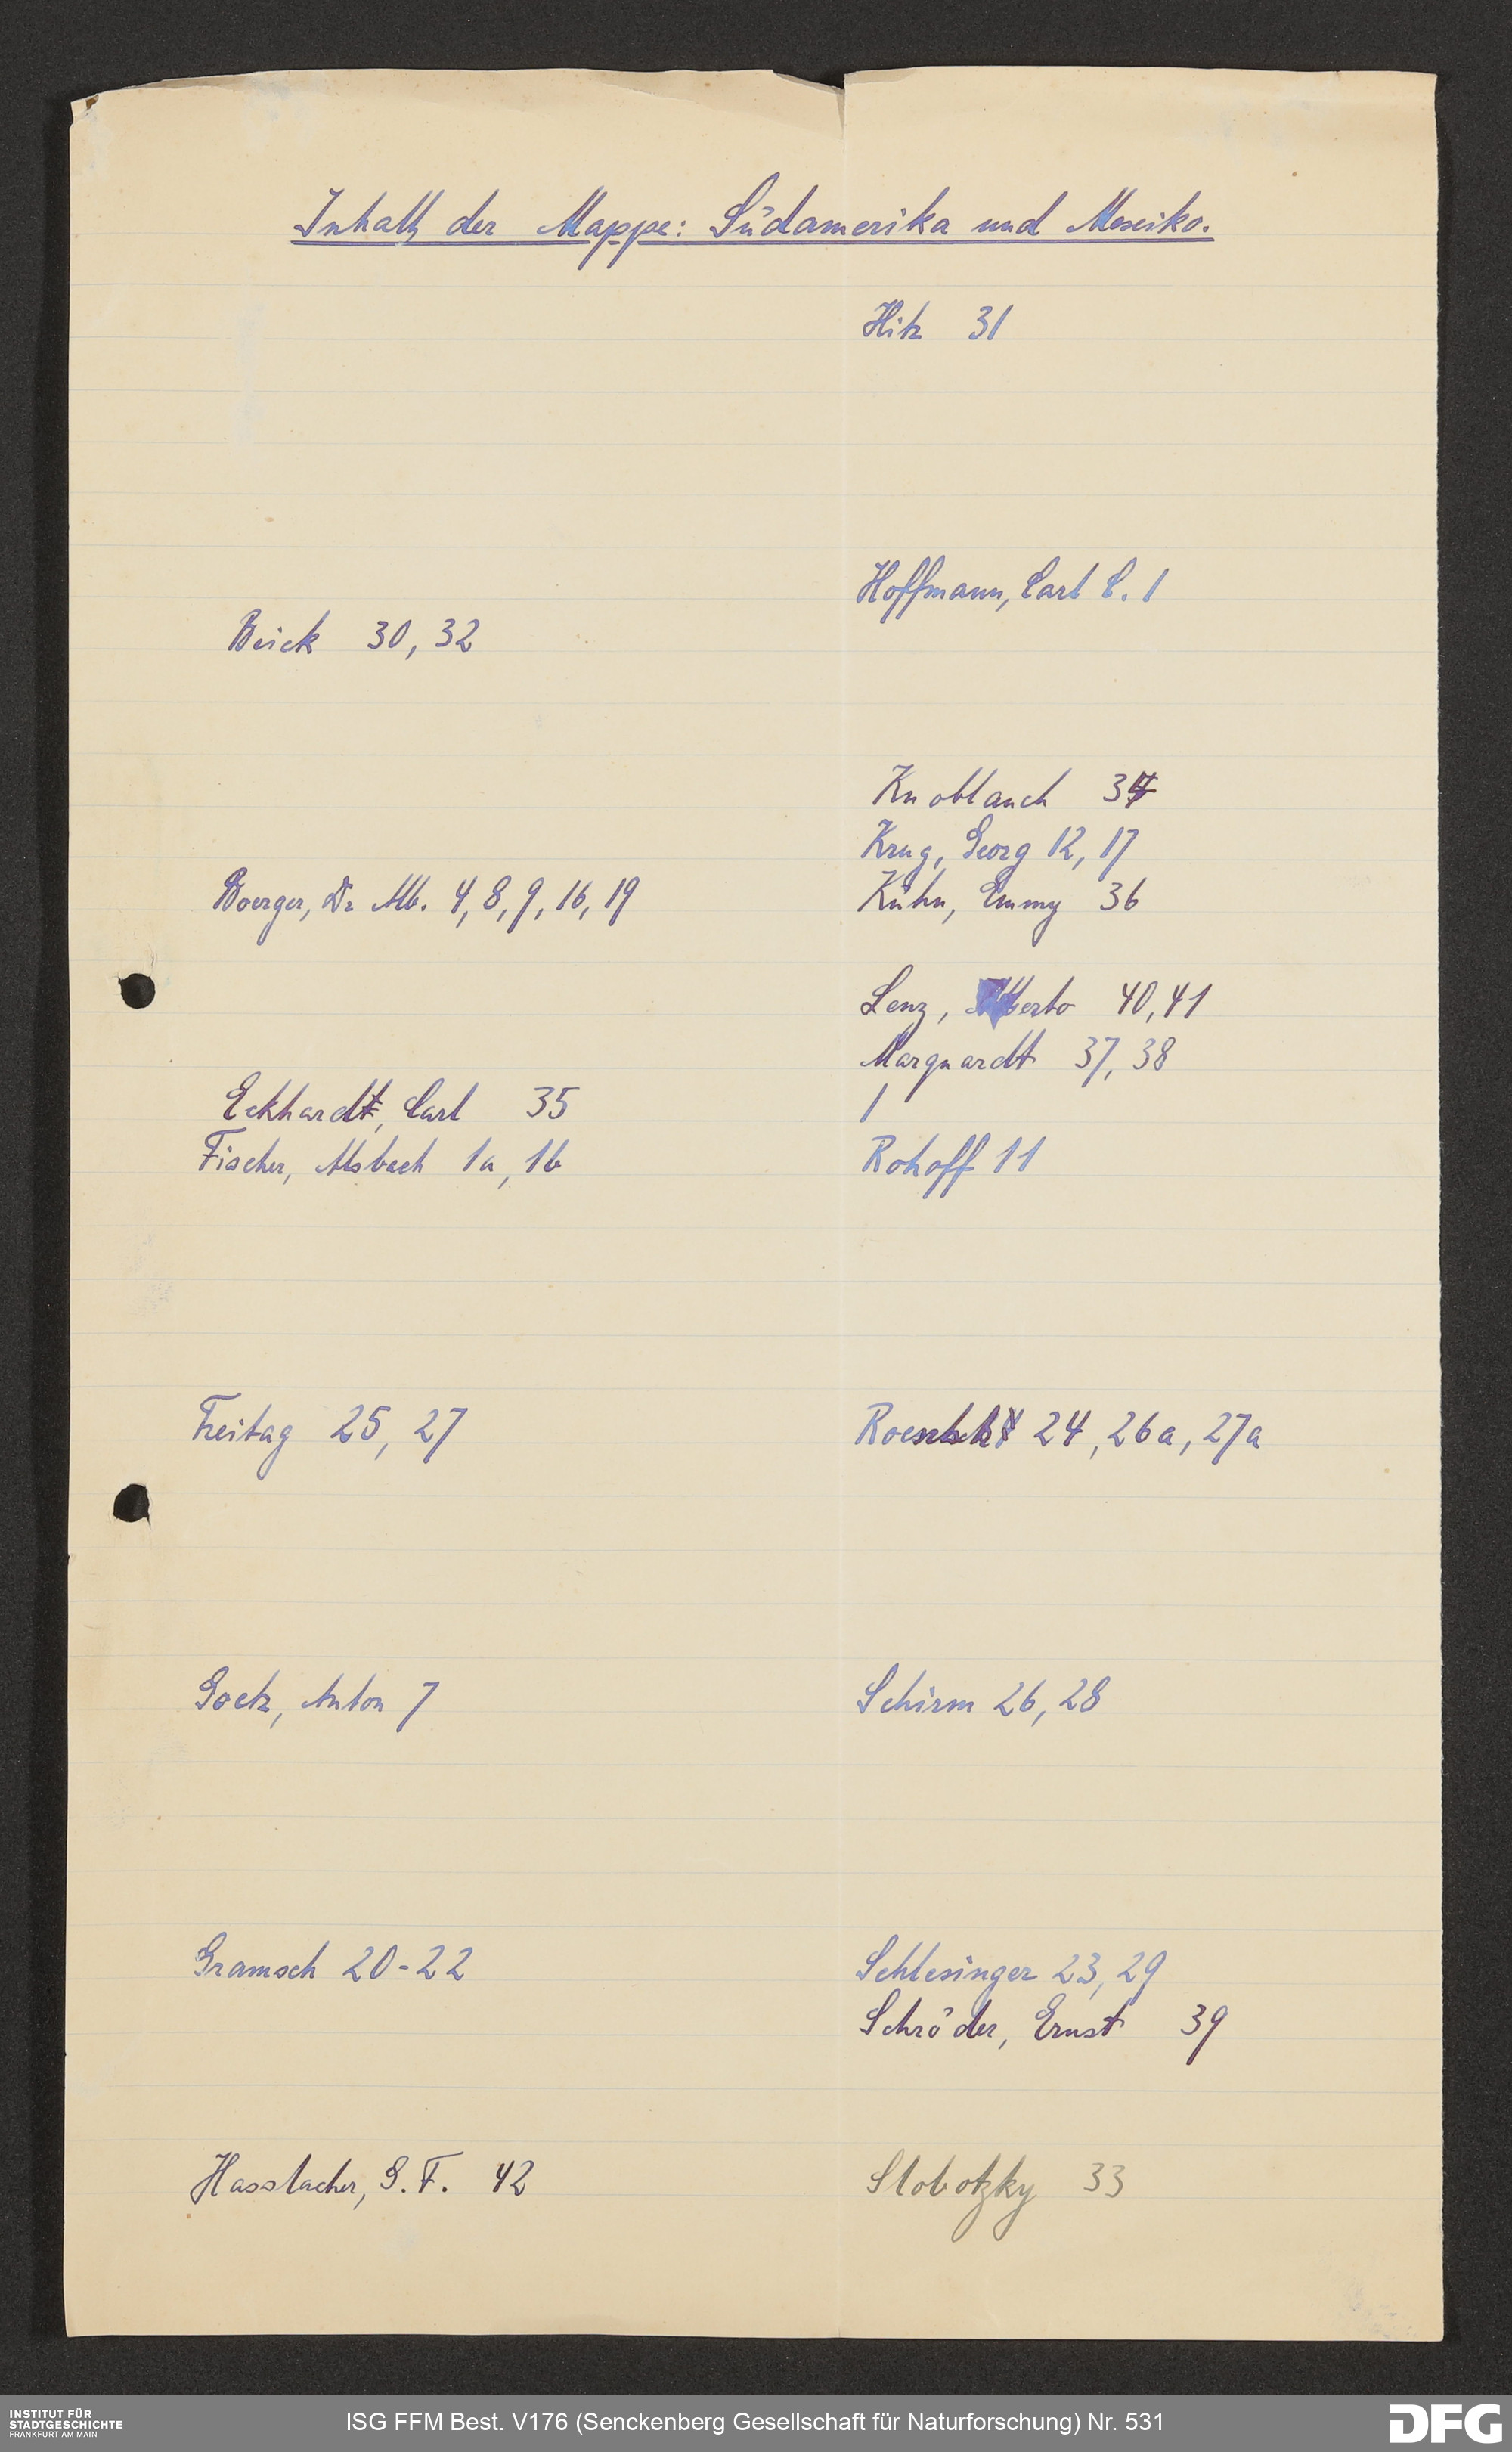 Inhalt der Mappe: Südamerika und Mexiko.
Beick 30, 32
Boerger, Dr. Alb. 4, 8, 9, 16, 19
Eckhardt, Carl 35
Fischer, Alsbach 1a, 1b
Freitag 25, 27
Goetz, Anton 7
Gramsch 20-22
Hasslacher, G. F. 42
Hitz 31
Hoffmann, Carl C. 1
Knoblauch 34
Krug, Georg 12, 17
Kühn, Emmy 36
Lenz, Alberto 40, 41
Marquardt 37, 38
Rohoff 11
24, 26a, 27a
Schirm 26, 28
Schlesinger 23, 29
Schröder, Ernst 39
Slobotzky 33
INSTITUT FÜR
STADTGESCHICHTE
FRANKFURT AM MAIN
ISG FFM Best. V176 (Senckenberg Gesellschaft für Naturforschung) Nr. 531
DFG